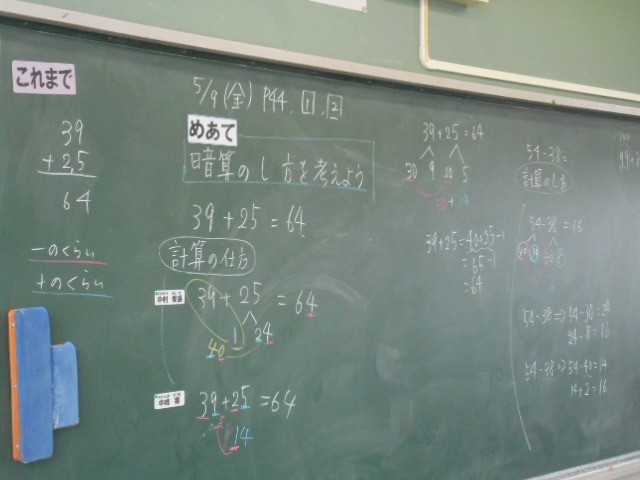 これまで
39
+25
64
一のくらい
十のくらい
5/9(金) P44. 1 . 2
めあて
暗算のし方を考えよう
39+25=64
計算の仕方
39+25=64
1 24
40
39+25=64
14
39+25=64
30 9 20 5
39+25=40+25-1
=65-1
=64
54-38=
計算のし方
54-38=16
54-38⇒54-30=24
24-8=16
54-38⇒54-40=14
14+2=16